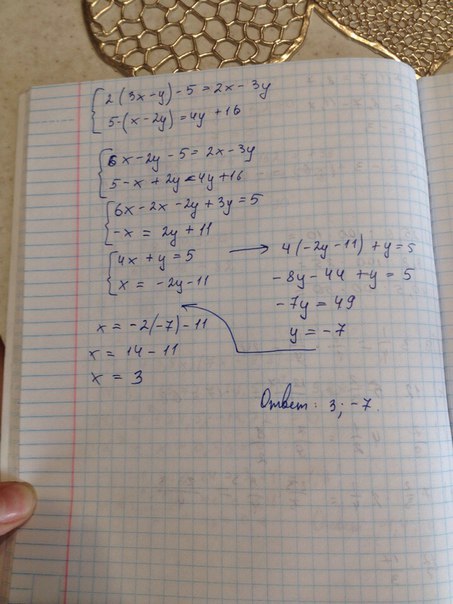 2(3x-y)-5=2x-3y
5-(x-2y)=4y+16
6x-2y-5=2x-3y
5-x+2y=4y+16
6x-2x-2y+3y=5
-x=2y+11
4x+y=5
x=-2y-11
4(-2y-11)+y=5
-8y-44+y=5
-7y=49
y=-7
x=-2(-7)-11
x=14-11
x=3
Ответ: 3;-7.